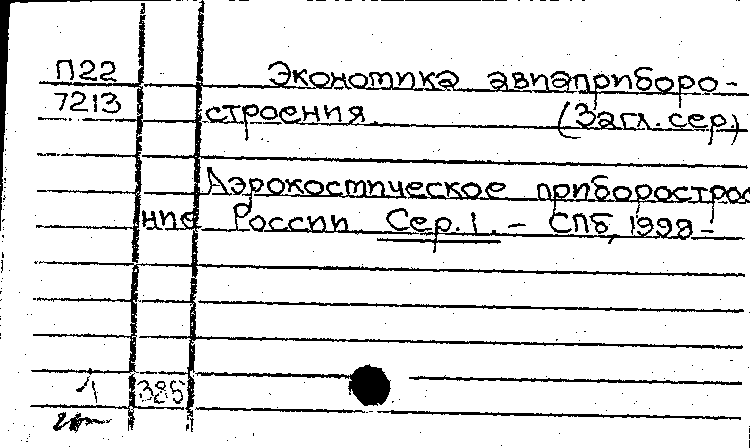 П22 Экономика авиаприборо-
7213 строения. (Загл. сер)
Аэрокосмическое приборострое
ние России. Сер. 1. - СПб, 1998-
1 385